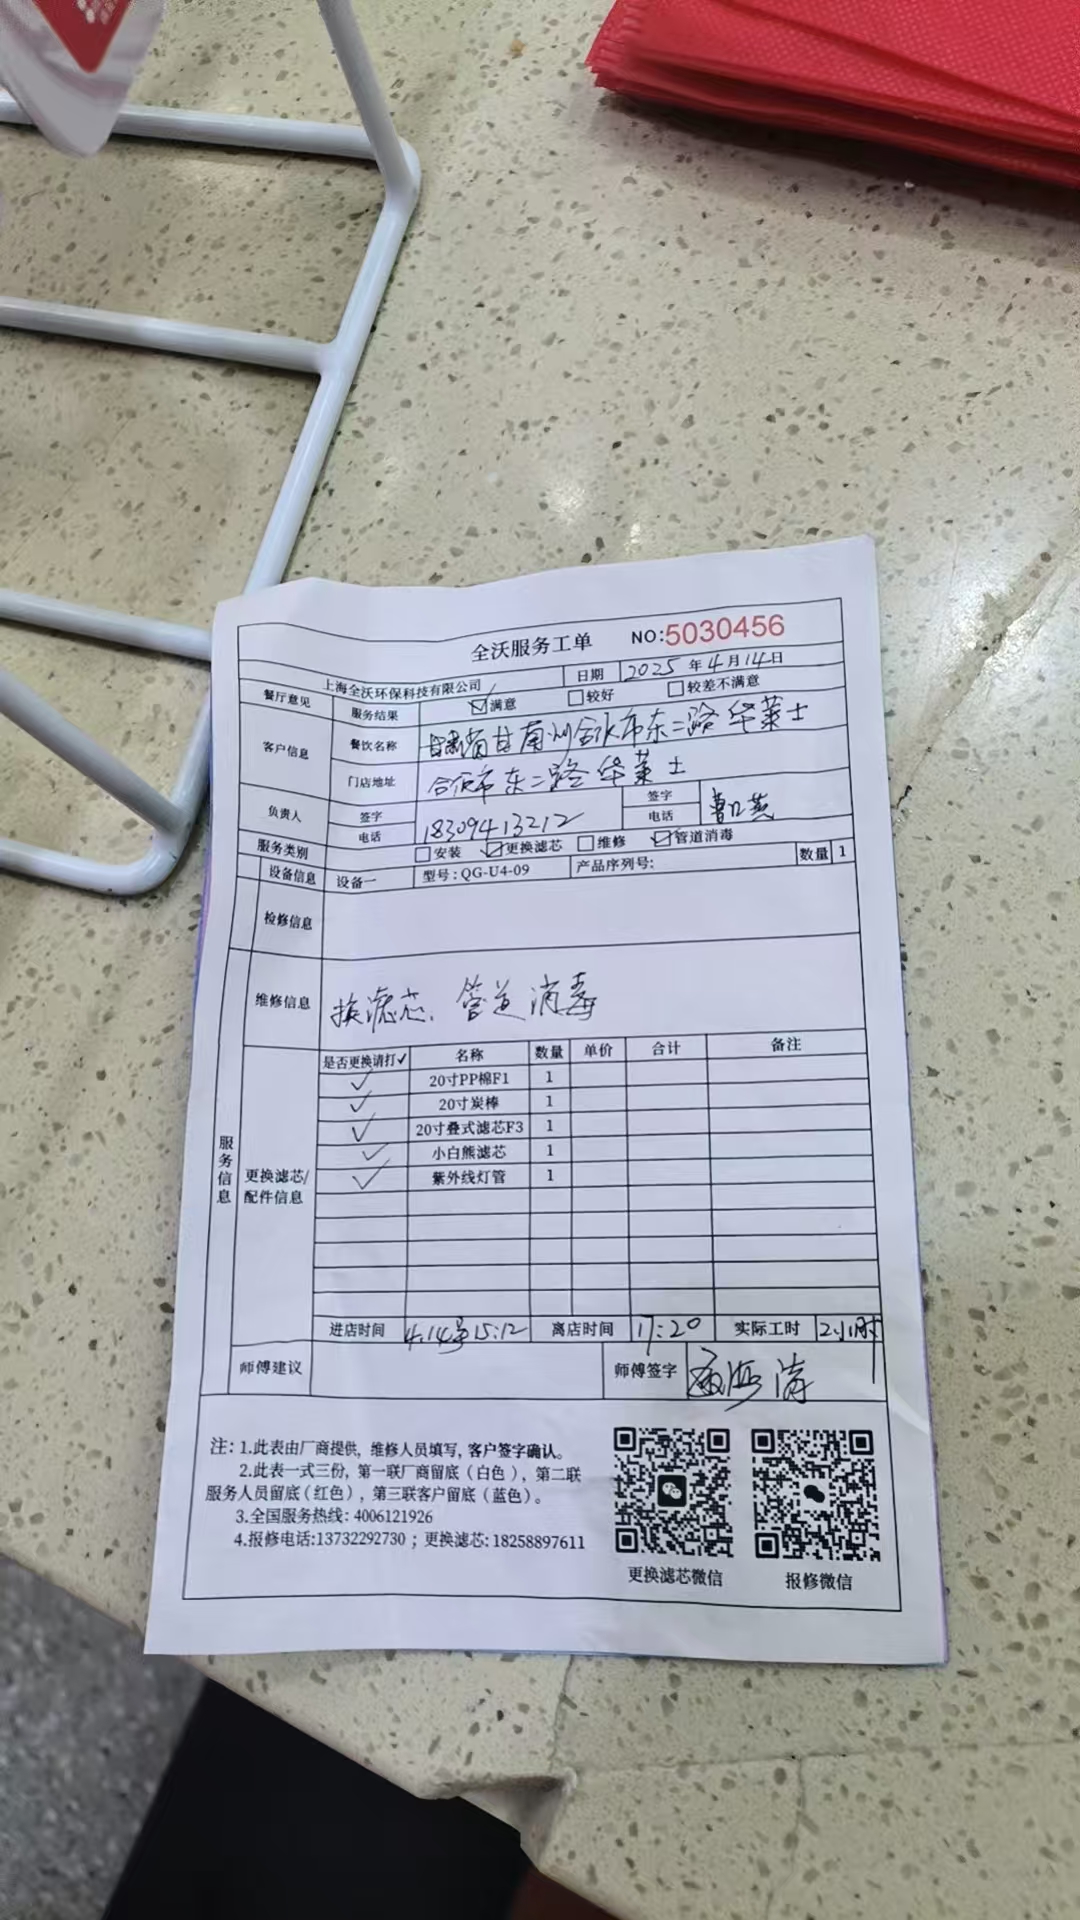 全沃服务工单 NO:5030456
上海全沃环保科技有限公司 日期 2025年4月14日
餐厅意见 服务结果 ☑满意 □较好 □较差不满意
客户信息 餐饮名称 甘肃省甘南州合作市东二路华莱士
门店地址 合作市东二路华莱士
负责人 签字 签字
电话 18309413212 电话
服务类别 □安装 ☑更换滤芯 □维修 ☑管道消毒
设备信息 设备一 型号:QG-U4-09 产品序列号: 数量 1
检修信息
维修信息 换滤芯、管道消毒
服务信息
更换滤芯/配件信息
是否更换请打✓ 名称 数量 单价 合计 备注
✓ 20寸PP棉F1 1
✓ 20寸炭棒 1
✓ 20寸叠式滤芯F3 1
✓ 小白熊滤芯 1
✓ 紫外线灯管 1
进店时间 4.14号15:12 离店时间 17:20 实际工时 2小时
师傅建议 师傅签字
注: 1.此表由厂商提供, 维修人员填写, 客户签字确认。
2.此表一式三份, 第一联厂商留底(白色), 第二联
服务人员留底(红色), 第三联客户留底(蓝色)。
3.全国服务热线: 4006121926
4.报修电话:13732292730 ; 更换滤芯: 18258897611
更换滤芯微信 报修微信